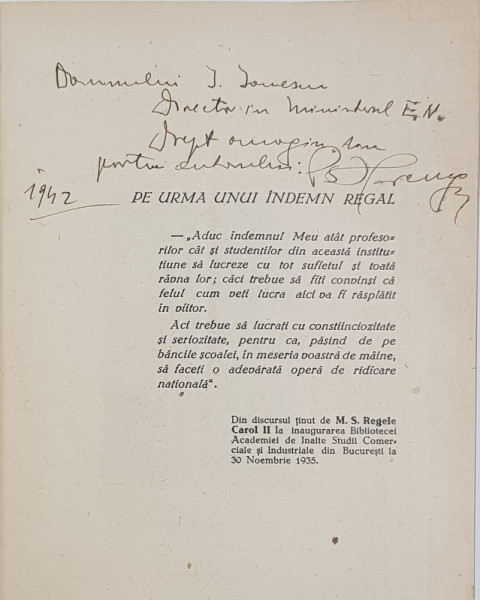 Domnului I. Ionescu
Director in Ministerul E.N.
Drept omagiu
pentru autorului:
1942
PE URMA UNUI ÎNDEMN REGAL
— „Aduc îndemnul Meu atât profeso=
rilor cât și studenților din această institu=
țiune să lucreze cu tot sufletul și toată
râvna lor; căci trebue să fiți convinși că
felul cum veți lucra aici va fi răsplătit
în viitor.
Aci trebue să lucrați cu constiinciozitate
și seriozitate, pentru ca, pășind de pe
băncile școalei, în meseria voastră de mâine,
să faceți o adevărată operă de ridicare
națională“.
Din discursul ținut de M. S. Regele
Carol II la inaugurarea Bibliotecei
Academiei de Inalte Studii Comer=
ciale și Industriale din București la
30 Noembrie 1935.